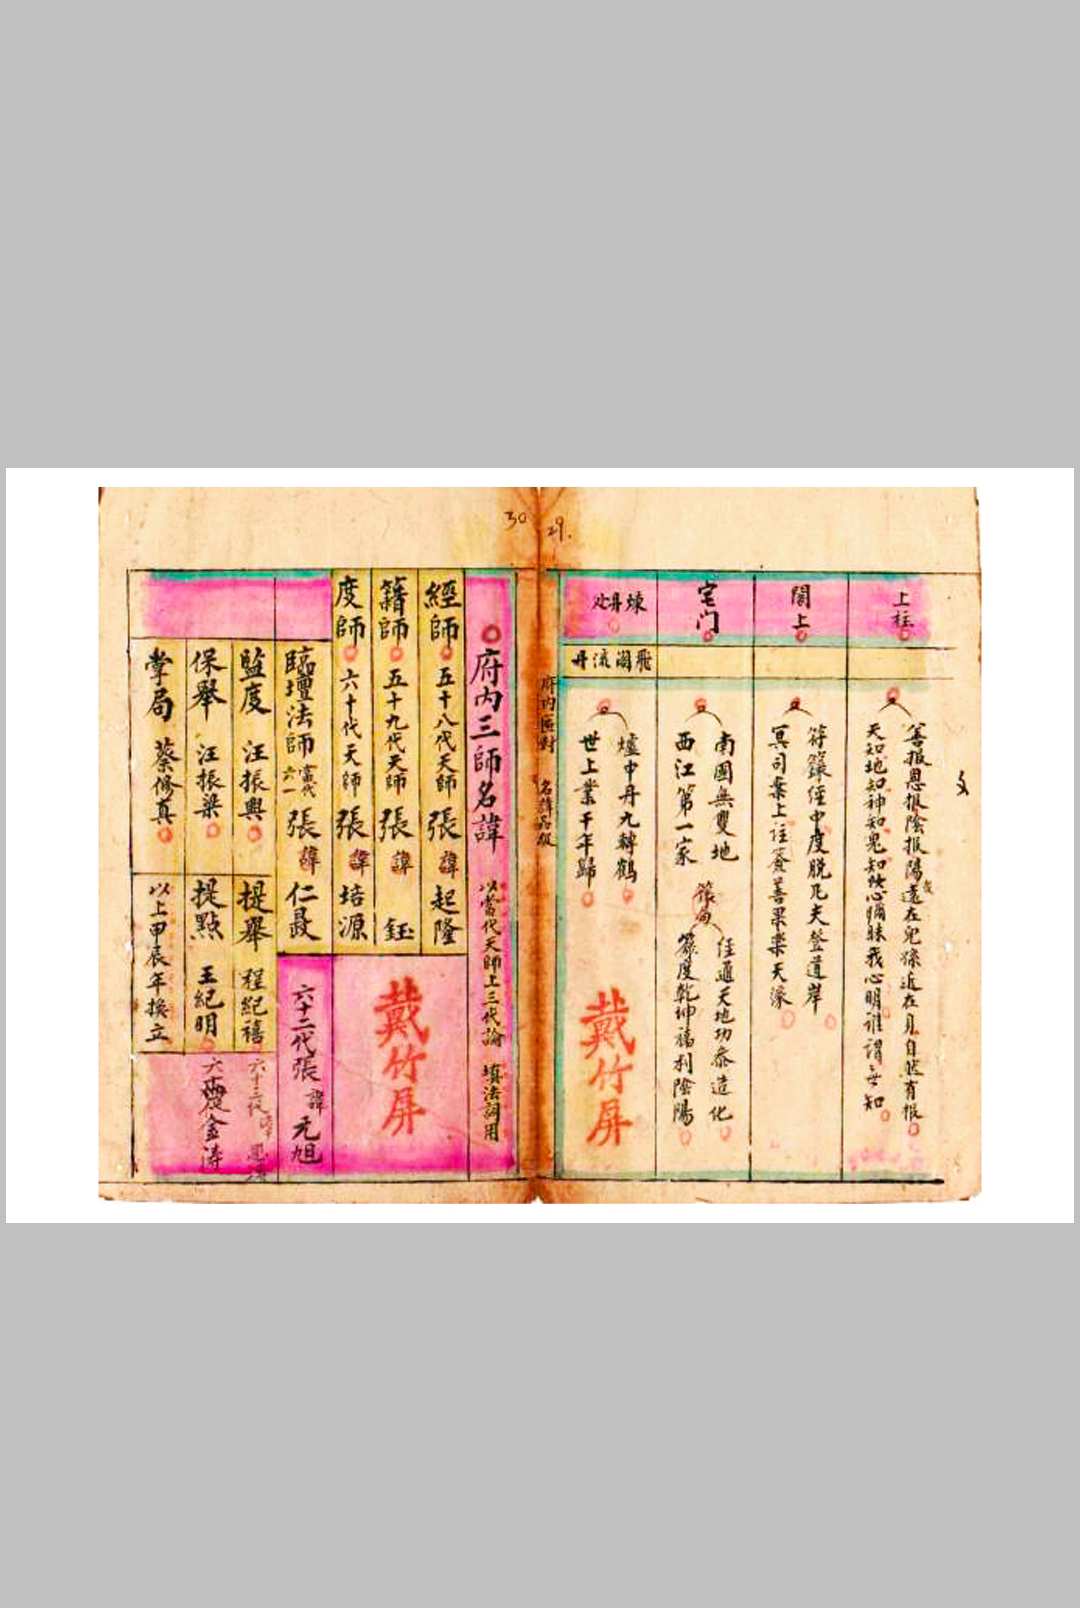 29.
上柱
善报恩报陰报陽遠在兒孫近在身自然有报
天知地知神知鬼知欺心瞞昧我心明誰謂无知
閣上
符籙經中度脫凡夫登道岸
冥司案上註簽善果樂天濠
宅门
南國無雙地
西江第一家
籙局
佳通天地功叅造化
籙度乾坤福利陰陽
煉丹处
飛閣流丹
爐中丹九轉鶴
世上業千年歸
戴竹屏
府内匾對 名諱品級
30
府内三師名諱 以當代天師上三代論 填法詞用
經師 五十八代天師 張諱起隆
籍師 五十九代天師 張諱鈺
度師 六十代天師 張諱培源
戴竹屏
臨壇法師 當代六一 張諱仁晸
六十二代張諱元旭
監度 汪振興
提舉 程紀禧
六十三代諱恩溥
保舉 汪振梁
提點 王紀明
金涛
掌局 蔡修真
以上甲辰年換立